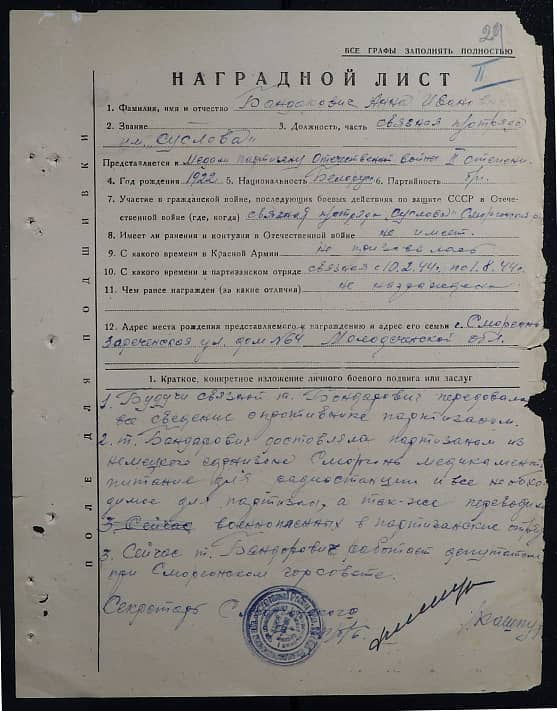 29
ВСЕ ГРАФЫ ЗАПОЛНЯТЬ ПОЛНОСТЬЮ
II
НАГРАДНОЙ ЛИСТ
1. Фамилия, имя и отчество Бондарович Анна Ивановн
2. Звание 3. Должность, часть связная п/отряда
им. "Суслова"
Представляется к Медали партизану Отечественной войны II степени.
4. Год рождения 1922 5. Национальность Белорус 6. Партийность б/п.
7. Участие в гражданской войне, последующих боевых действиях по защите СССР в Отече-
ственной войне (где, когда) связная п/отряда "Суслова" Сморгонск
8. Имеет ли ранения и контузии в Отечественной войне не имеет.
9. С какого времени в Красной Армии не призывалась
10. С какого времени в партизанском отряде связная с 10.2.44г. по 1.8.44г.
11. Чем ранее награжден (за какие отличия) не награждалась
12. Адрес места рождения представляемого к награждению и адрес его семьи г. Сморгонь
Зареченская ул. дом №64 Молодеченской обл.
1. Краткое, конкретное изложение личного боевого подвига или заслуг
1. Будучи связной т. Бондарович передовала
все сведение о противнике партизаном.
2. т. Бондарович достовляла партизаном из
немецкого гарнизона Сморгонь медикамент
питание для радиостанции и все необхо-
димое для партизан, а так-же переводила
3. Сейчас военнопленных в партизанские отряд
3. Сейчас т. Бондорович работает депутатом
при Сморгонском горсовете.
Секретарь
ПОЛЕ ДЛЯ ПОДШИВКИ